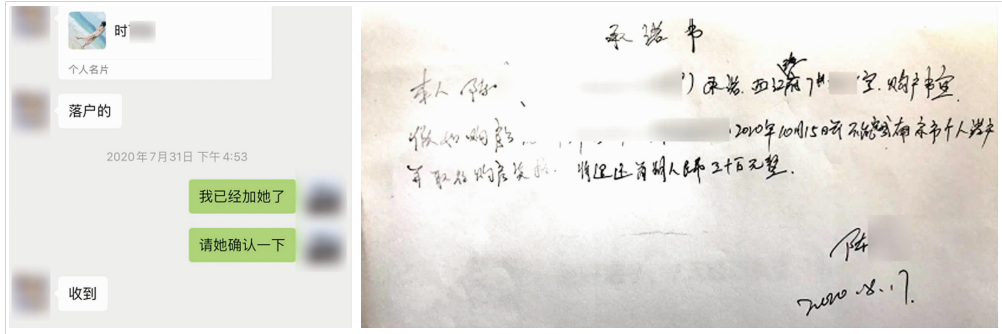 时
个人名片
落户的
2020年7月31日 下午4:53
我已经加她了
请她确认一下
收到
承诺书
本人 陈
承诺.西
室.购户
做如购房
2020年10月15日前不能 南京市个人落户
并取得购房资格. 将退还 首期人民币三十百元整.
陈
2020.8.17.